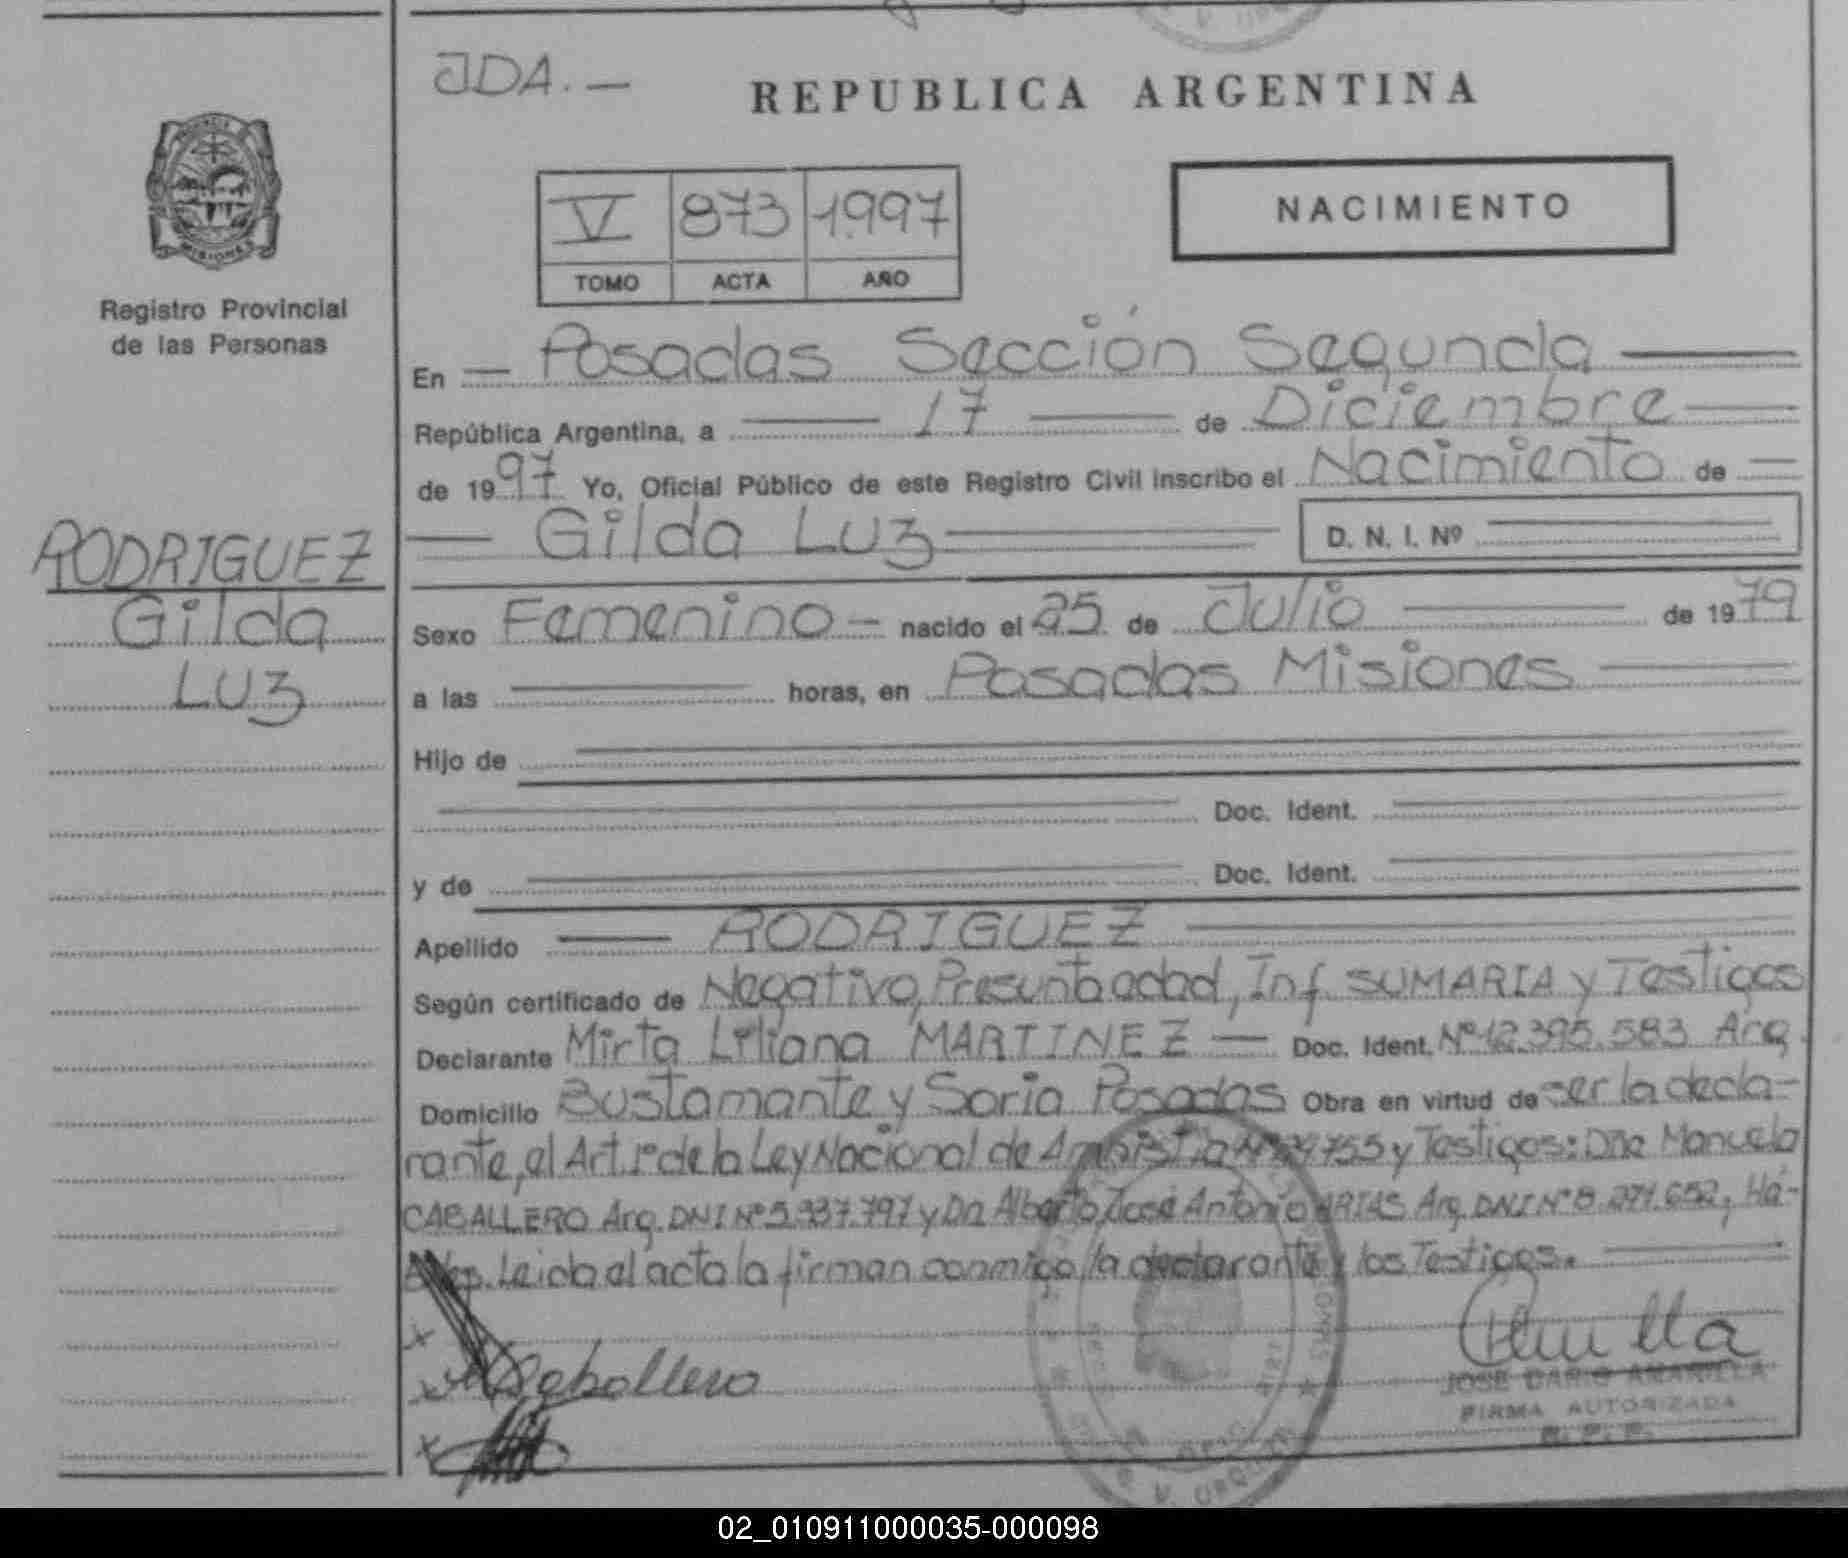 JDA. —
REPUBLICA ARGENTINA
PROVINCIA DE
MISIONES
Registro Provincial
de las Personas
V 873 1.997
TOMO ACTA AÑO
NACIMIENTO
En — Posadas Sección Segunda —
República Argentina, a — 17 — de Diciembre —
de 1997 Yo, Oficial Público de este Registro Civil inscribo el Nacimiento de —
— Gilda Luz — D. N. I. Nº —
RODRIGUEZ
Gilda
Luz
Sexo Femenino — nacido el 25 de Julio — de 1979
a las — horas, en Posadas Misiones —
Hijo de —
— Doc. Ident. —
y de — Doc. Ident. —
Apellido — RODRIGUEZ —
Según certificado de Negativo, Presunta edad, Inf. SUMARIA y Testigos
Declarante Mirta Liliana MARTINEZ — Doc. Ident. Nº 12.395.583 Arg.
Domicilio Bustamante y Soria Posadas Obra en virtud de ser la decla-
rante, el Art. 1º de la Ley Nacional de Amnistia Nº 24755 y Testigos: Dña Manuela
CABALLERO Arg. DNI Nº 5.937.797 y Dn Alberto José Antonio ARIAS Arg. DNI Nº 8.274.652, Há-
Leida el acta la firman conmigo, la declarante y los Testigos. —
x
x Caballero
x
JOSE DARIO AMARILLA
FIRMA AUTORIZADA
R. P. P.
02_010911000035-000098